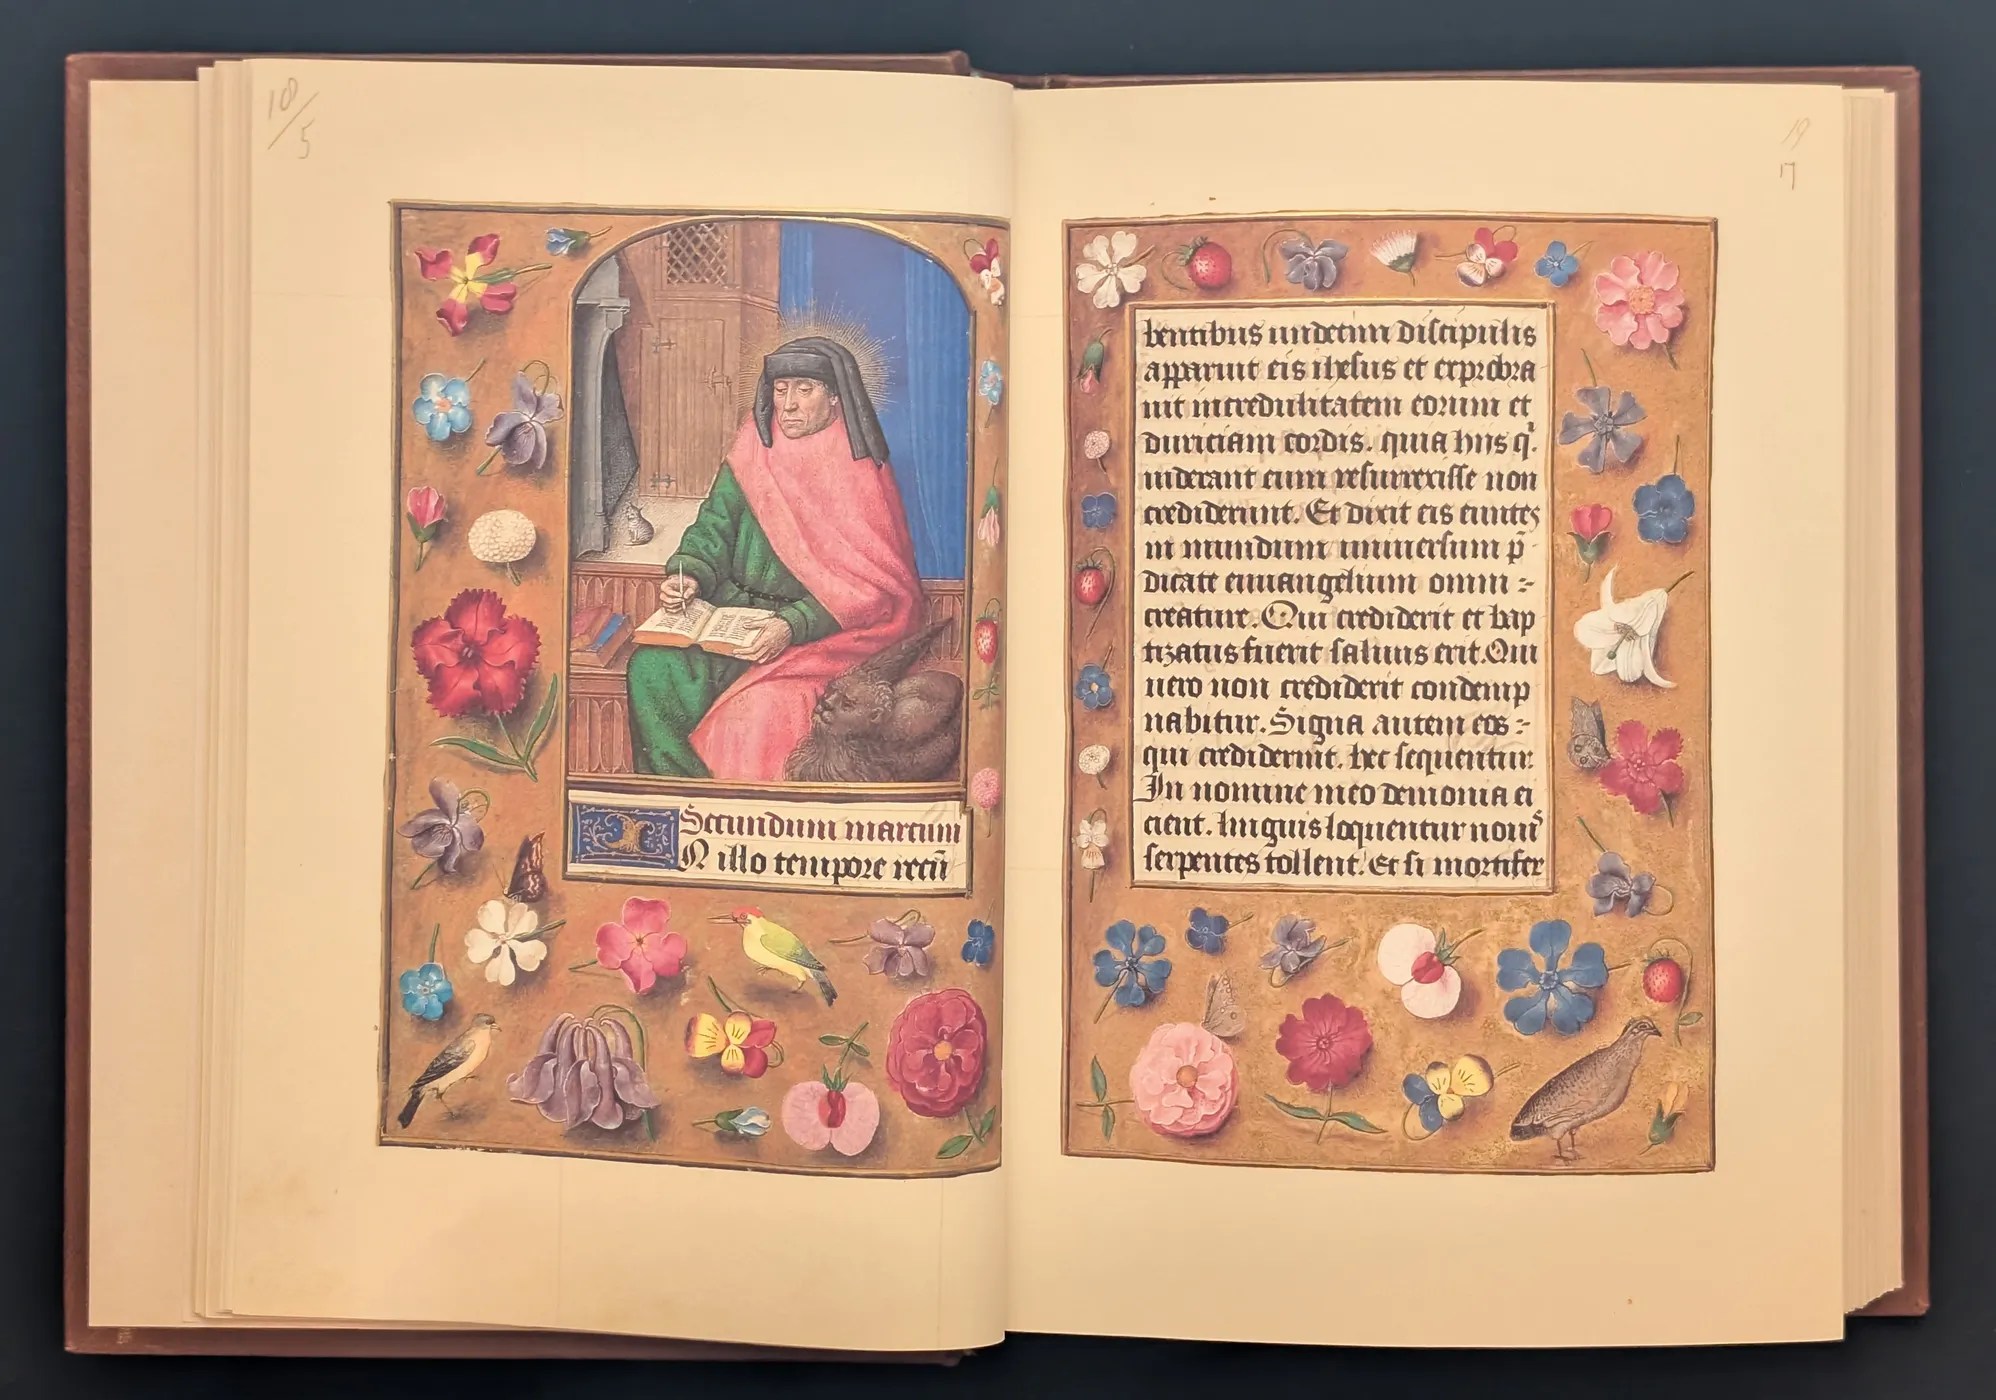 18/5
Secundum marcum
IN illo tempore recū
19
17
bentibus undecim discipulis
apparuit eis ihesus et exprobra
uit incredulitatem eorum et
duriciam cordis. quia hiis q̄
uiderant eum resurrexisse non
crediderunt. Et dixit eis euntes
in mundum uniuersum p̄
dicate euuangelium omni :~
creature. Qui crediderit et bap
tizatus fuerit saluus erit. Qui
uero non crediderit condemp
nabitur. Signa autem eos :~
qui crediderint. hec sequentur.
In nomine meo demonia ei
cient. linguis loquentur nouis
serpentes tollent. Et si mortifer